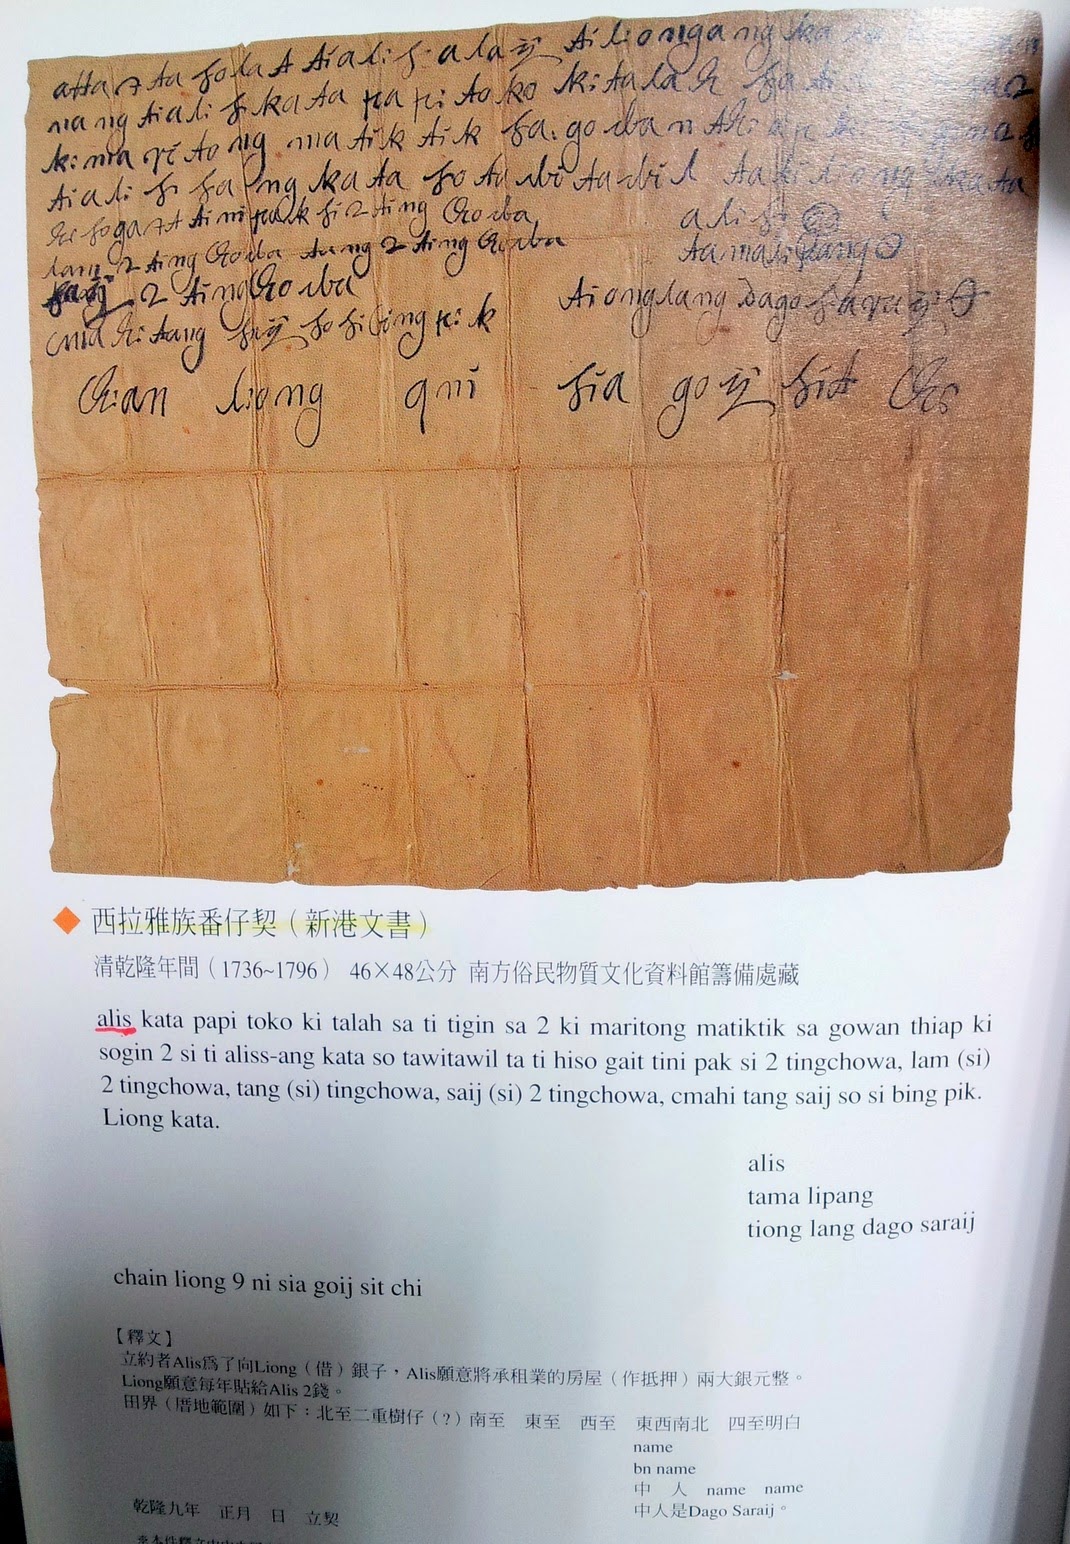 atta
Tiali
ti tiali si kata papi toko ki talah sa ti
ki maritong matiktik sa gowan
tiali si sa ng kata so tawitawil
hi sogat tini pak si 2 ting cho wa
alis
lam 2 ting cho wa tang 2 ting cho wa
tama li pang
saij 2 ting cho wa
tiong lang Dago saraij
cma hi tang saij so si bing pi k
chian liong 9 ni sia goij sit chi
西拉雅族番仔契（新港文書）
清乾隆年間（1736~1796） 46×48公分 南方俗民物質文化資料館籌備處藏
alis kata papi toko ki talah sa ti tigin sa 2 ki maritong matiktik sa gowan thiap ki
sogin 2 si ti aliss-ang kata so tawitawil ta ti hiso gait tini pak si 2 tingchowa, lam (si)
2 tingchowa, tang (si) tingchowa, saij (si) 2 tingchowa, cmahi tang saij so si bing pik.
Liong kata.
alis
tama lipang
tiong lang dago saraij
chain liong 9 ni sia goij sit chi
【釋文】
立約者Alis為了向Liong（借）銀子，Alis願意將承租業的房屋（作抵押）兩大銀元整。
Liong願意每年貼給Alis 2錢。
田界（厝地範圍）如下：北至二重樹仔（?）南至 東至 西至 東西南北 四至明白
name
bn name
中 人 name name
中人是Dago Saraij。
乾隆九年 正月 日 立契